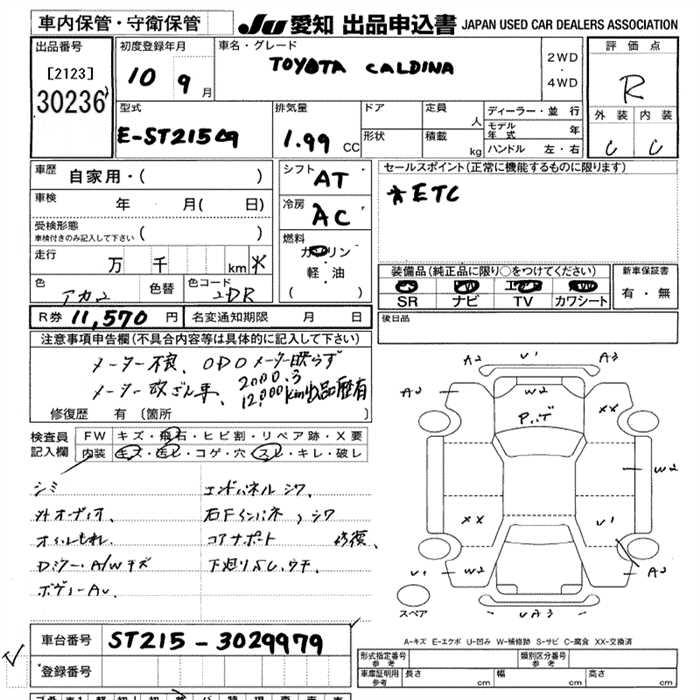 車内保管・守衛保管 JU 愛知 出品申込書 JAPAN USED CAR DEALERS ASSOCIATION
出品番号
[2123]
30236
初度登録年月
10 9 月
車名・グレード
TOYOTA CALDINA
2WD
・
4WD
評価点
R
外装 内装
C C
型式
E-ST215
排気量
1.99 CC
ドア
形状
定員 人
積載 kg
ディーラー・並行
モデル年式 年
ハンドル 左・右
車歴
自家用・( )
車検 年 月( 日)
受検形態
車検付きのみ記入して下さい ( )
走行 万 千 km
色 アカ2 色替 色コード 2DR
シフト AT
冷房 AC
燃料
ガソリン
軽・油
( )
セールスポイント(正常に機能するものに限ります)
ETC
装備品(純正品に限り○をつけてください)
SR ナビ TV カワシート
新車保証書
有・無
R券 11,570 円 名変通知期限 月 日
後日品
注意事項申告欄(不具合内容等は具体的に記入して下さい)
メーター不良、ODOメーター映らず
メーター改ざん車、2000.3
12,000km出品歴有
修復歴 有 (箇所
検査員
記入欄
FW キズ・飛石・ヒビ割・リペア跡・X要
内装 キズ・汚レ・コゲ・穴・スレ・キレ・破レ
シミ
外オーディオ、
オイルもれ、
Dミラー・A/Wキズ
エンドパネルシワ
コアサポート 修復、
A2 V1 A3
A2
W2
XX
W2
XX
V1
V1
W2
A2
スペア
A-キズ E-エクボ U-凹み W-補修跡 S-サビ C-腐食 XX-交換済
車台番号 ST215-3029979
登録番号
形式指定番号
参考
類別区分番号
参考
車庫証明用
参考
長さ cm 幅 cm 高さ cm